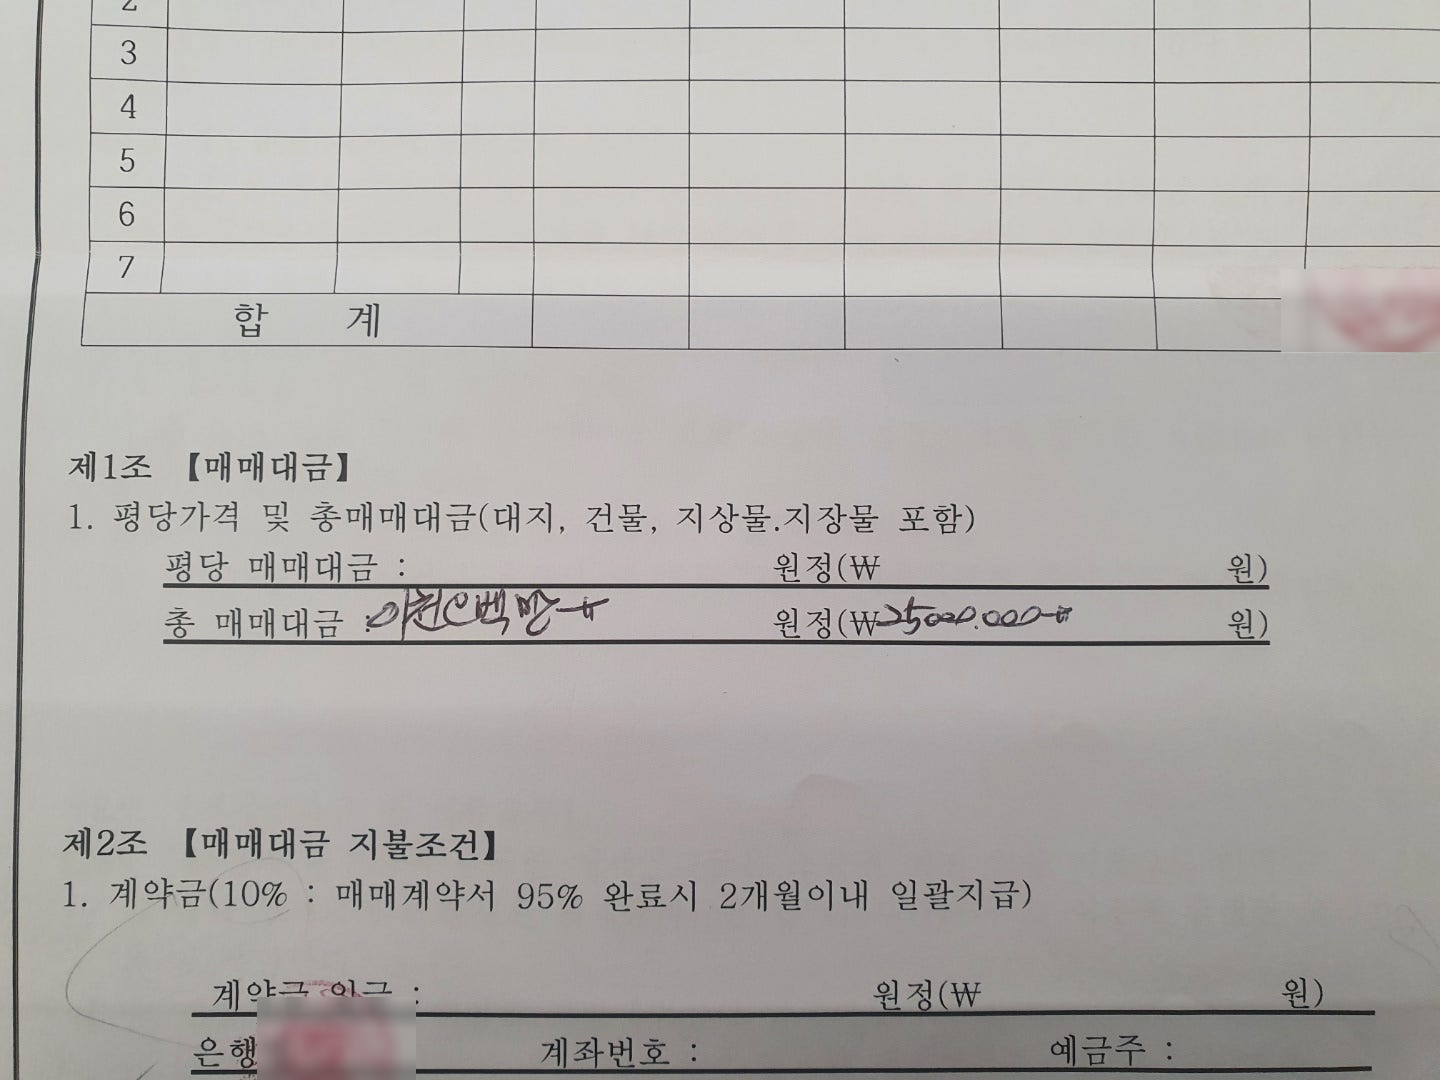 2
3
4
5
6
7
합 계
제1조 【매매대금】
1. 평당가격 및 총매매대금(대지, 건물, 지상물.지장물 포함)
평당 매매대금 : 원정(₩ 원)
총 매매대금 : 이천오백만 원정(₩25000.000 원)
제2조 【매매대금 지불조건】
1. 계약금(10% : 매매계약서 95% 완료시 2개월이내 일괄지급)
계약금 입금 : 원정(₩ 원)
은행 계좌번호 : 예금주 :